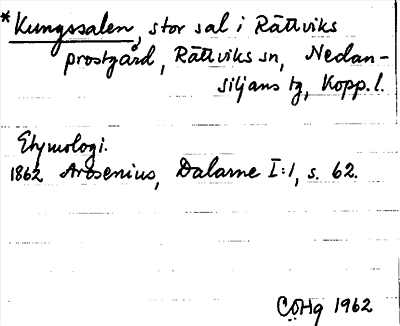 *Kungssalen, stor sal i Rättviks
prostgård, Rättviks sn, Nedan-
siljans tg, Kopp. l.
Etymologi.
1862 Arosenius, Dalarne I:1, s. 62.
COHg 1962